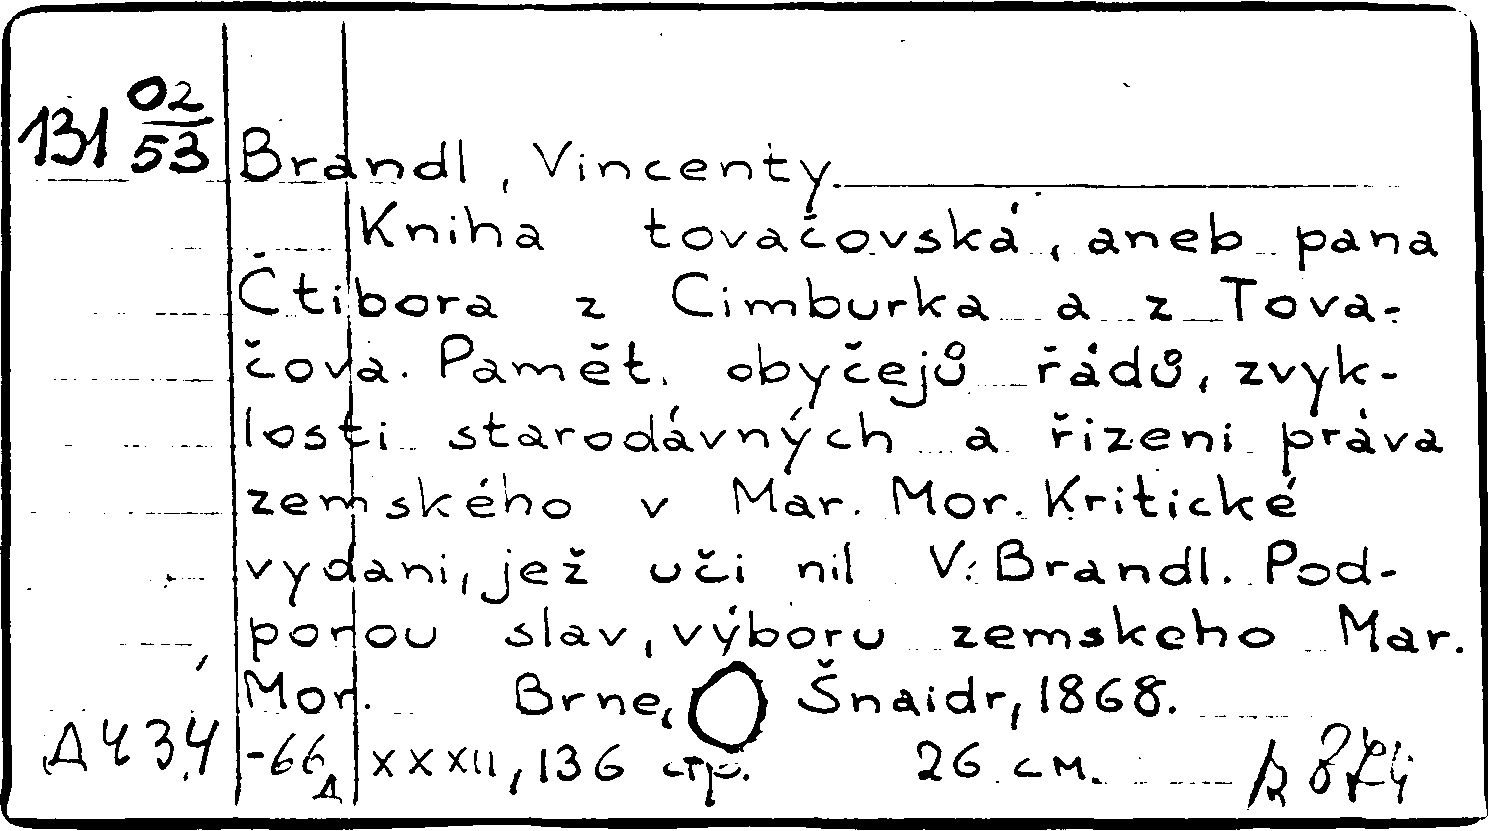 131 02/53 Brandl, Vincenty
Kniha tovačovská, aneb pana
Čtibora z Cimburka a z Tova-
čova. Pamět. obyčejů řádů, zvyk-
losti starodávných a řizeni práva
zemského v Mar. Mor. Kritické
vydani, jež uči nil V. Brandl. Pod-
porou slav, výboru zemskeho Mar.
Mor. Brne, Šnaidr, 1868.
Д 43,4 -66 XXXII, 136 стр. 26 см.